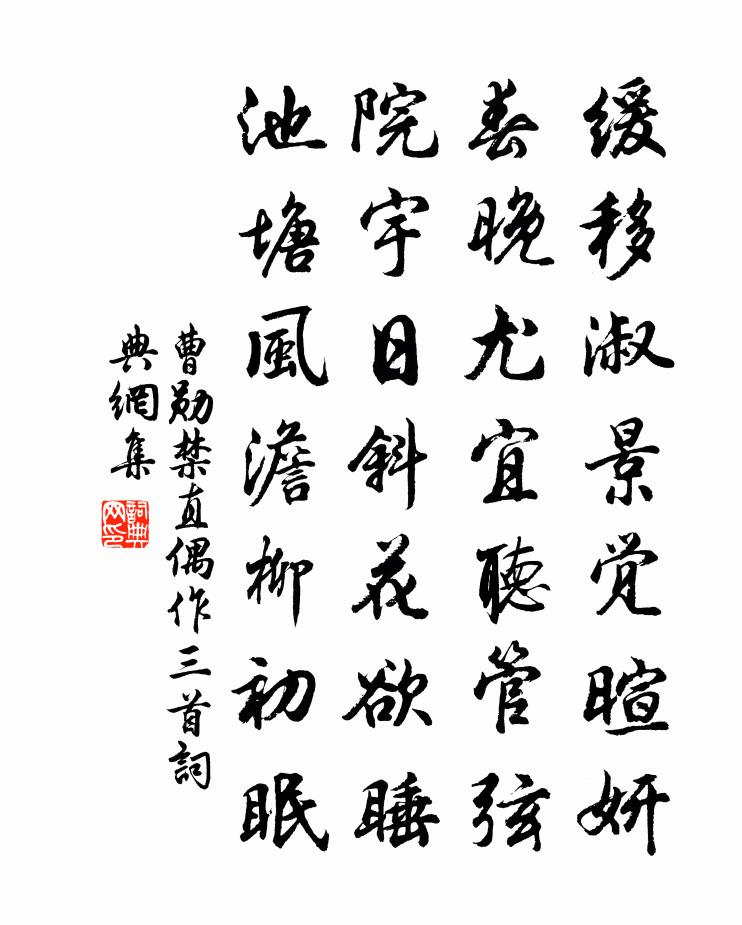 缓移淑景觉暄妍
春晚尤宜聽管弦
院宇日斜花欲睡
池塘風澹柳初眠
曹勋禁直偶作三首詞
典網集
詞典
网印